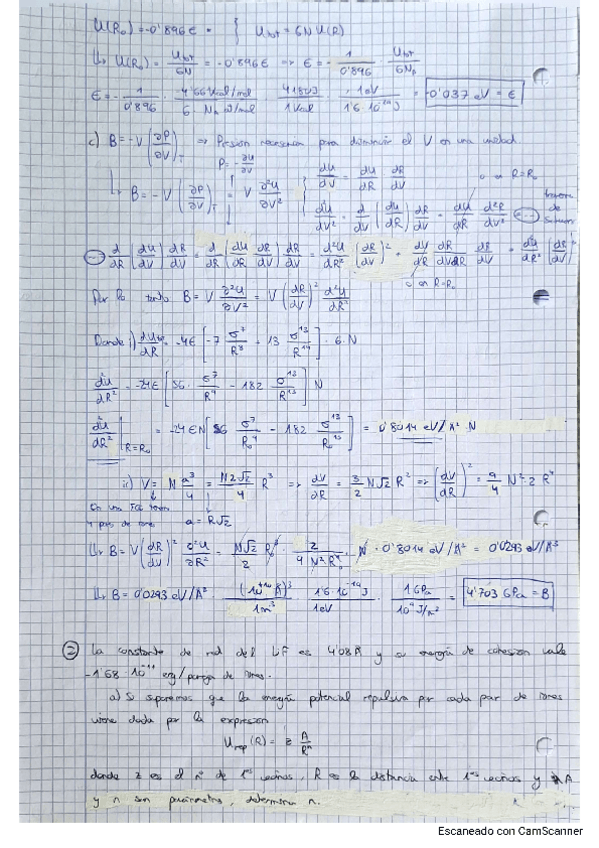 U(R₀) = -0'896 ε { U_tot = 6N U(R)
↳ U(R₀) = U_tot/6N = -0'896 ε ⇒ ε = - 1/0'896 · U_tot/6N
ε = - 1/0'896 · 4'66 kcal/mol / 6 · · 4184 J/1 kcal · 1 eV/1'6·10⁻¹⁹ J = 0'037 eV = ε
c) B = -V (∂P/∂V)_T ⇒ Presion necesaria para disminuir el V en una unidad.
P = - ∂U/∂V
↳ B = -V (∂P/∂V)_T = V ∂²U/∂V² { dU/dV = dU/dR dR/dV
0 en R=R₀
d²U/dV² = d/dV (dU/dR) dR/dV + dU/dR d²R/dV²
d/dR (dU/dV) dR/dV = d/dR (dU/dR dR/dV) dR/dV = d²U/dR² (dR/dV)² + = d²U/dR² (dR/dV)²
0 en R=R₀
Por lo tanto B = V ∂²U/∂V² = V (dR/dV)² d²U/dR²
Donde i) dU/dR = -4ε [-7 σ⁷/R⁸ + 13 σ¹³/R¹⁴] · 6 · N
d²U/dR² = -24ε [56 · σ⁷/R⁹ - 182 σ¹³/R¹⁵] N
d²U/dR² |R=R₀ = -24 ε N [56 σ⁷/R₀⁹ - 182 σ¹³/R₀¹⁵] = 0'8014 eV/A² N
ii) V = N a³/4 = N2√2/4 R³ ⇒ dV/dR = 3/2 N√2 R² ⇒ (dV/dR)² = 9/4 N² 2 R⁴
En una FCC
4 a = R√2
↳ B = V (dR/dV)² ∂²U/∂R² = N√2/2 R₀³ · 2/4 N² R₀⁴ · N · 0'8014 eV/A² = 0'0293 eV/A³
↳ B = 0'0293 eV/A³ · (10¹⁰ A)³/1m³ · 1'6·10⁻¹⁹ J/1eV · 1 GPa/10⁹ J/m³ = 4'703 GPa = B
2 La constante de red del LF es 4'08 A y su energía de cohesion vale
-1'68 · 10⁻¹¹ erg/pareja de iones.
a) Si suponemos que la energía potencial repulsiva por cada par de iones
viene dada por la expresion
U_rep (R) = z A/Rⁿ
donde z es el nº de 1ᵒˢ vecinos, R es la distancia entre 1ᵒˢ vecinos y A
y n son parámetros, determinar n.
Escaneado con CamScanner